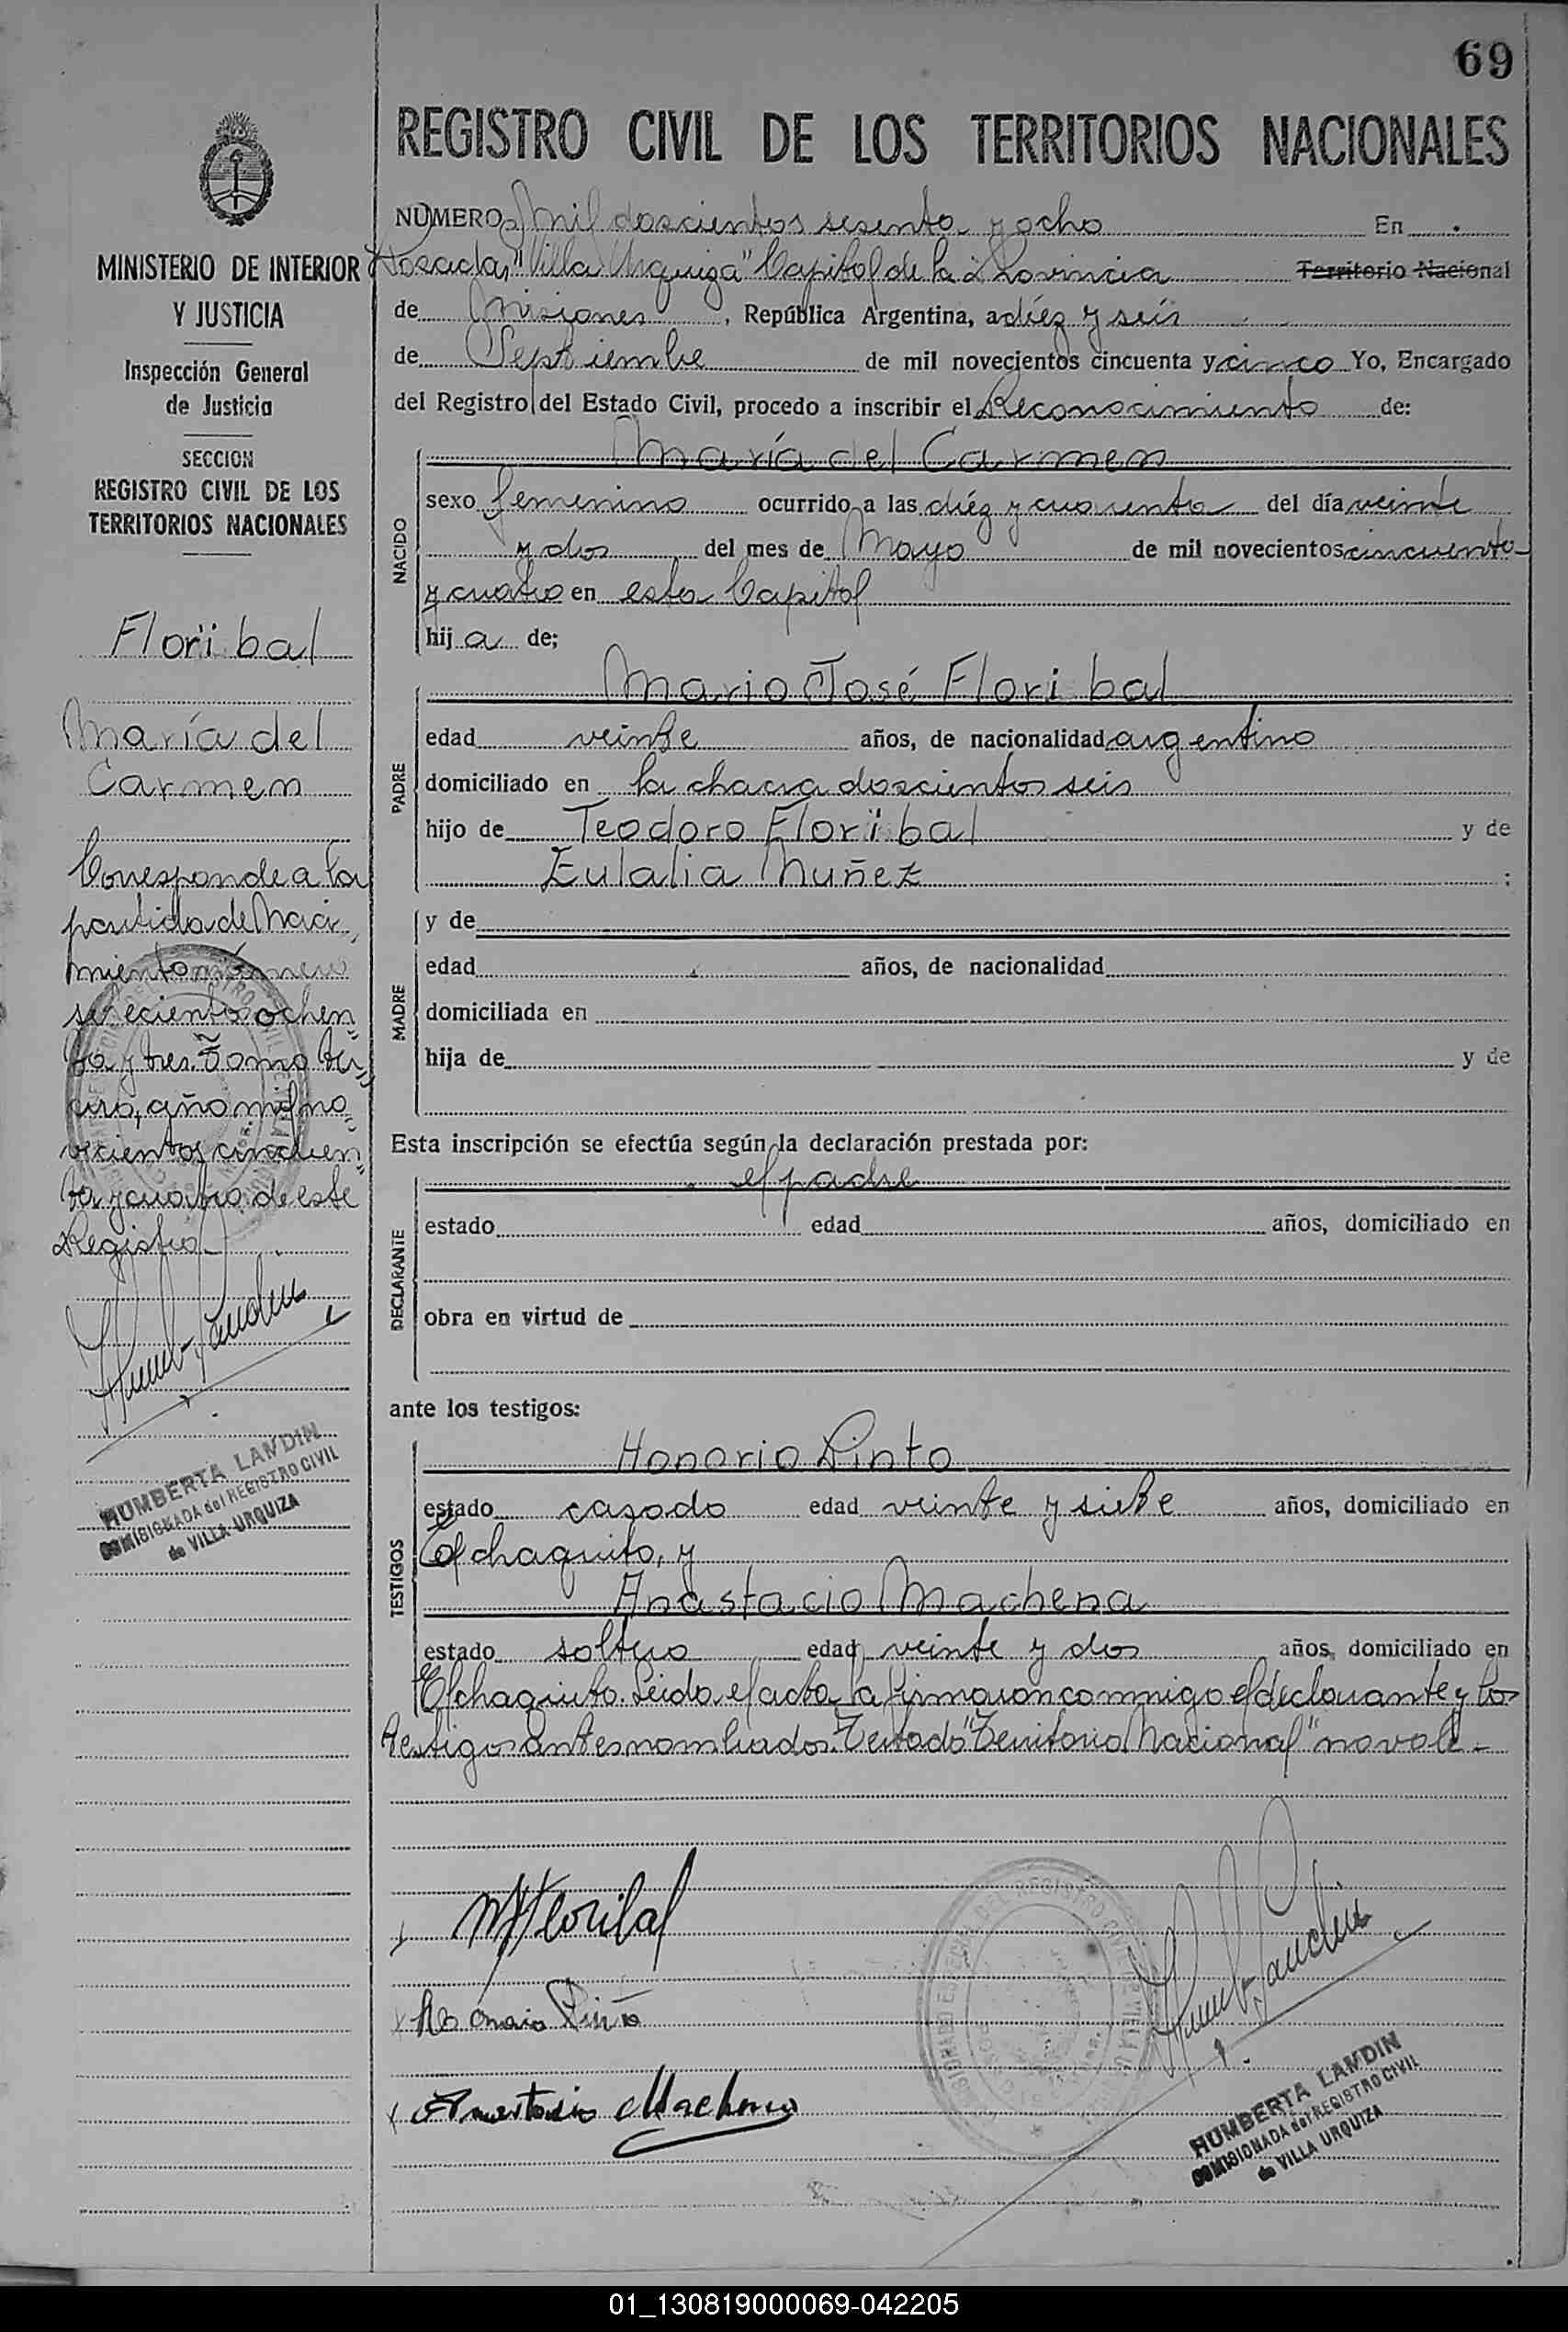 69
REGISTRO CIVIL DE LOS TERRITORIOS NACIONALES
MINISTERIO DE INTERIOR
Y JUSTICIA
Inspección General
de Justicia
SECCION
REGISTRO CIVIL DE LOS
TERRITORIOS NACIONALES
Floribal
María del
Carmen
Corresponde a la
partida de Naci-
miento número
setecientos ochen-
ta y tres. Tomo ter-
cero, año mil no-
vecientos cincuen-
ta y cuatro de este
Registro.
HUMBERTA LANDIN
COMISIONADA del REGISTRO CIVIL
de VILLA URQUIZA
NUMERO Mil doscientos sesenta y ocho En
Posadas, "Villa Urquiza" Capital de la Provincia Territorio Nacional
de Misiones, República Argentina, a diéz y seis
de Septiembre de mil novecientos cincuenta y cinco Yo, Encargado
del Registro del Estado Civil, procedo a inscribir el Reconocimiento de:
NACIDO
María del Carmen
sexo femenino ocurrido a las diéz y cuarenta del día veinte
y dos del mes de Mayo de mil novecientos cincuenta
y cuatro en esta Capital
hij a de;
PADRE
Mario José Floribal
edad veinte años, de nacionalidad argentino
domiciliado en la chacra doscientos seis
hijo de Teodoro Floribal y de
Eulalia Nuñez ;
MADRE
y de
edad años, de nacionalidad
domiciliada en
hija de y de
Esta inscripción se efectúa según la declaración prestada por:
DECLARANTE
el padre
estado edad años, domiciliado en
obra en virtud de
ante los testigos:
TESTIGOS
Honorio Pinto
estado casado edad veinte y siete años, domiciliado en
El chaquito, y
Anastacio Machena
estado soltero edad veinte y dos años, domiciliado en
El chaquito. Leida el acta la firmaron conmigo el declarante y los
testigos antes nombrados. Testado "Territorio Nacional" no vale.-
M J Floribal
Honorio Pinto
Anastacio Machena
HUMBERTA LANDIN
COMISIONADA del REGISTRO CIVIL
de VILLA URQUIZA
01_130819000069-042205